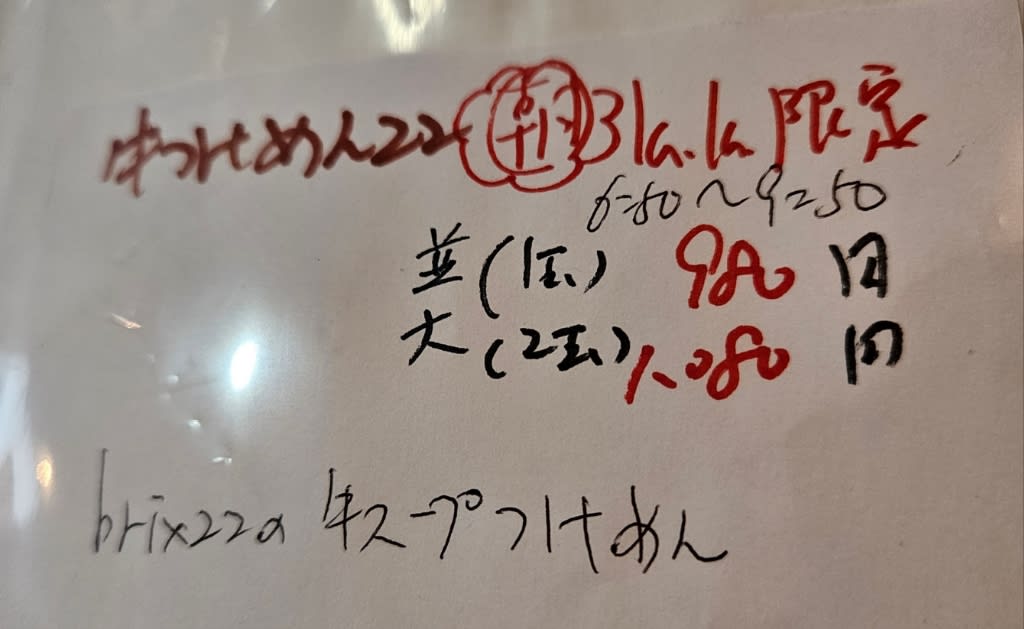 牛つけめん22 la.la.限定
6=50〜9=50
並(1玉) 980円
大(2玉) 1,080円
brix22の牛スープつけめん